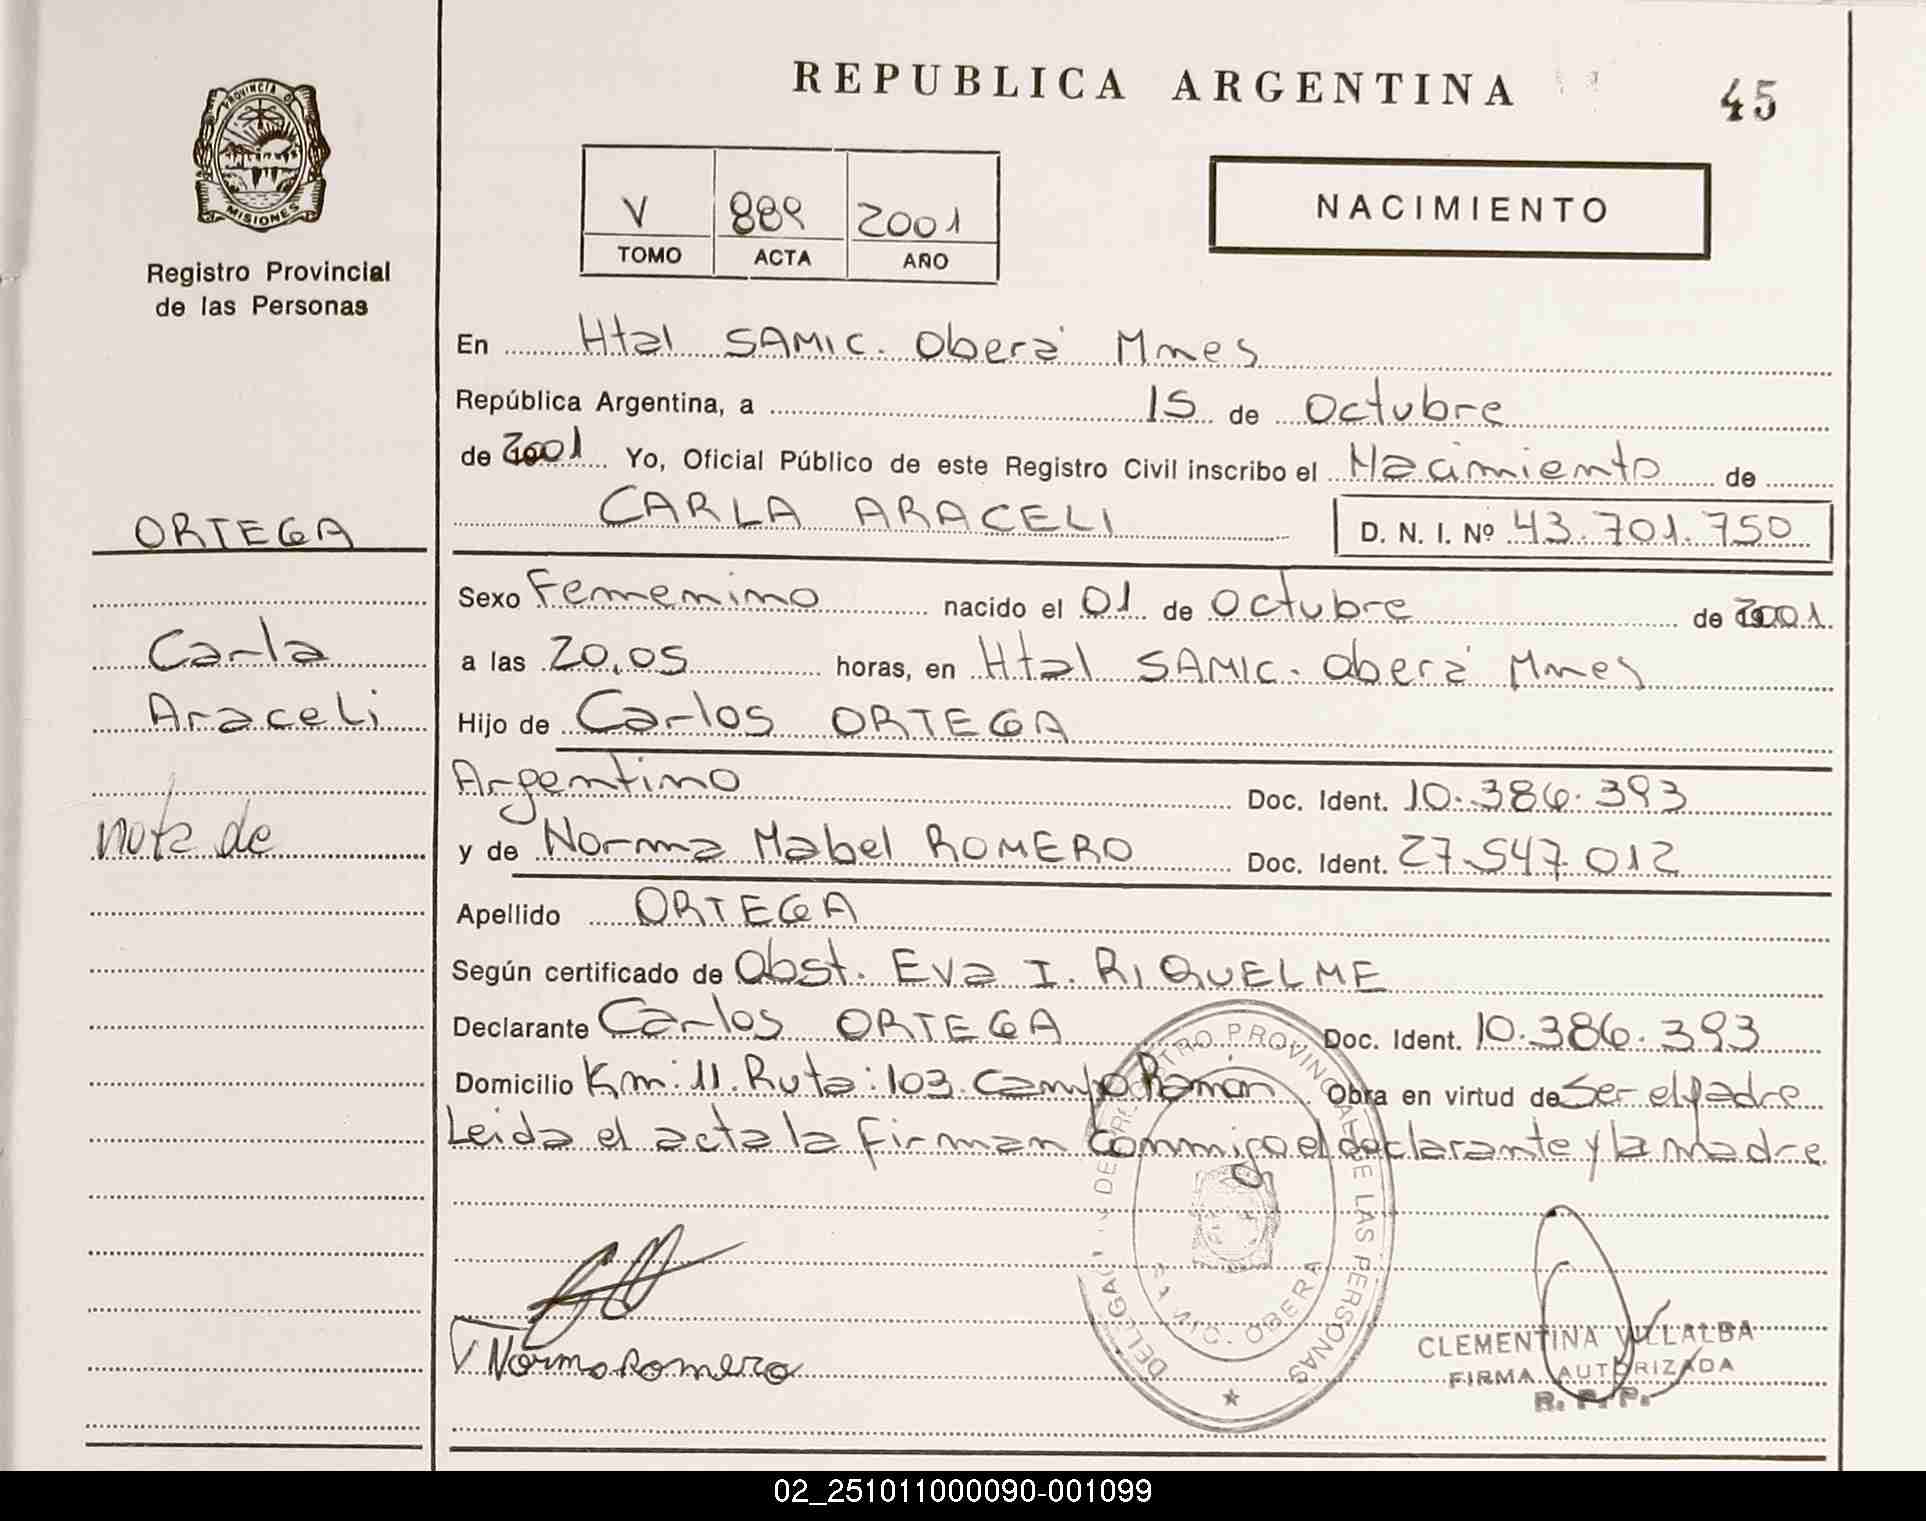 REPUBLICA ARGENTINA
45
PROVINCIA D
MISIONES
Registro Provincial
de las Personas
V 889 2001
TOMO ACTA AÑO
NACIMIENTO
En Htal SAMIC. Oberá Mnes
República Argentina, a 15 de Octubre
de 2001 Yo, Oficial Público de este Registro Civil inscribo el Nacimiento de
CARLA ARACELI D. N. I. Nº 43.701.750
ORTEGA
Carla
Araceli
nota de
Sexo Femenino nacido el 01 de Octubre de 2001.
a las 20,05 horas, en Htal SAMIC. Oberá Mnes
Hijo de Carlos ORTEGA
Argentino Doc. Ident. 10.386.393
y de Norma Mabel ROMERO Doc. Ident. 27.547.012
Apellido ORTEGA
Según certificado de Obst. Eva I. RIQUELME
Declarante Carlos ORTEGA Doc. Ident. 10.386.393
Domicilio Km: 11. Ruta: 103. Campo Ramon Obra en virtud de Ser el padre
Leida el acta la firman conmigo el declarante y la madre
PROVINCIAL DE LAS PERSONAS
OBERA
Norma Romero
CLEMENTINA VILLALBA
FIRMA AUTORIZADA
R. P. P.
02_251011000090-001099